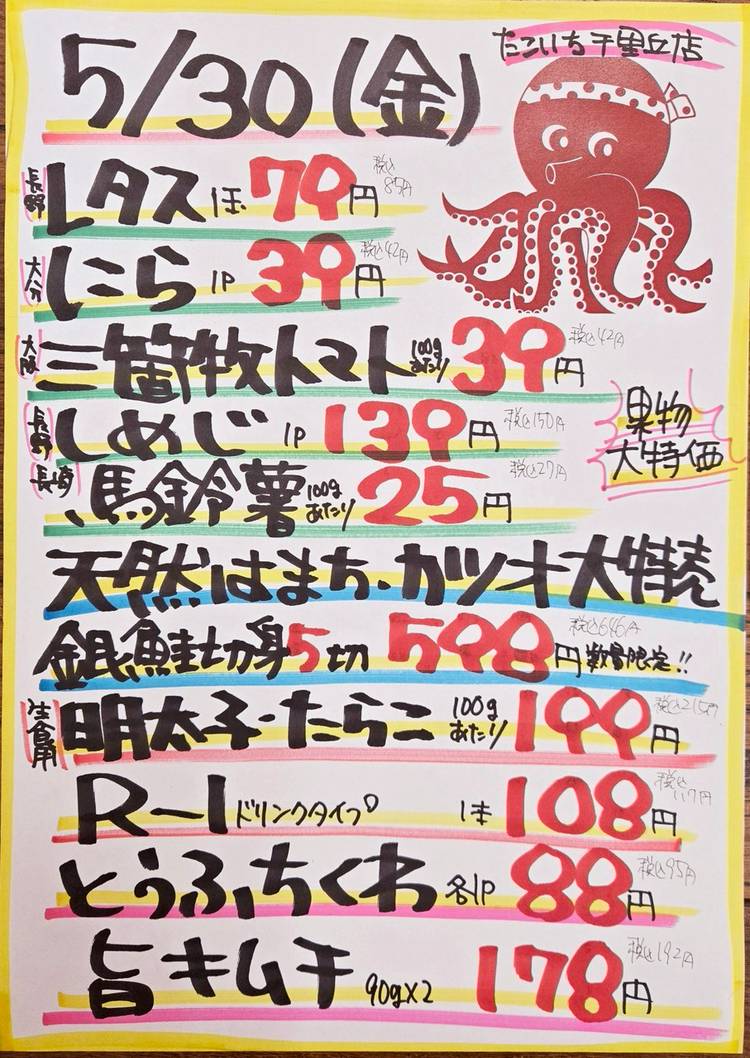 たこいち千里丘店
5/30(金)
長野 レタス 1玉 79円 税込85円
大分 にら 1P 39円 税込42円
大阪 三箇牧トマト 100gあたり 39円 税込42円
長野 しめじ 1P 139円 税込150円
果物大特価
長崎 馬鈴薯 100gあたり 25円 税込27円
天然はまち・カツオ大特売
銀鮭切身5切 598円 税込646円 数量限定!!
生食用 明太子・たらこ 100gあたり 199円 税込215円
R-1ドリンクタイプ 1本 108円 税込117円
とうふちくわ 各1P 88円 税込95円
旨キムチ 90g×2 178円 税込192円